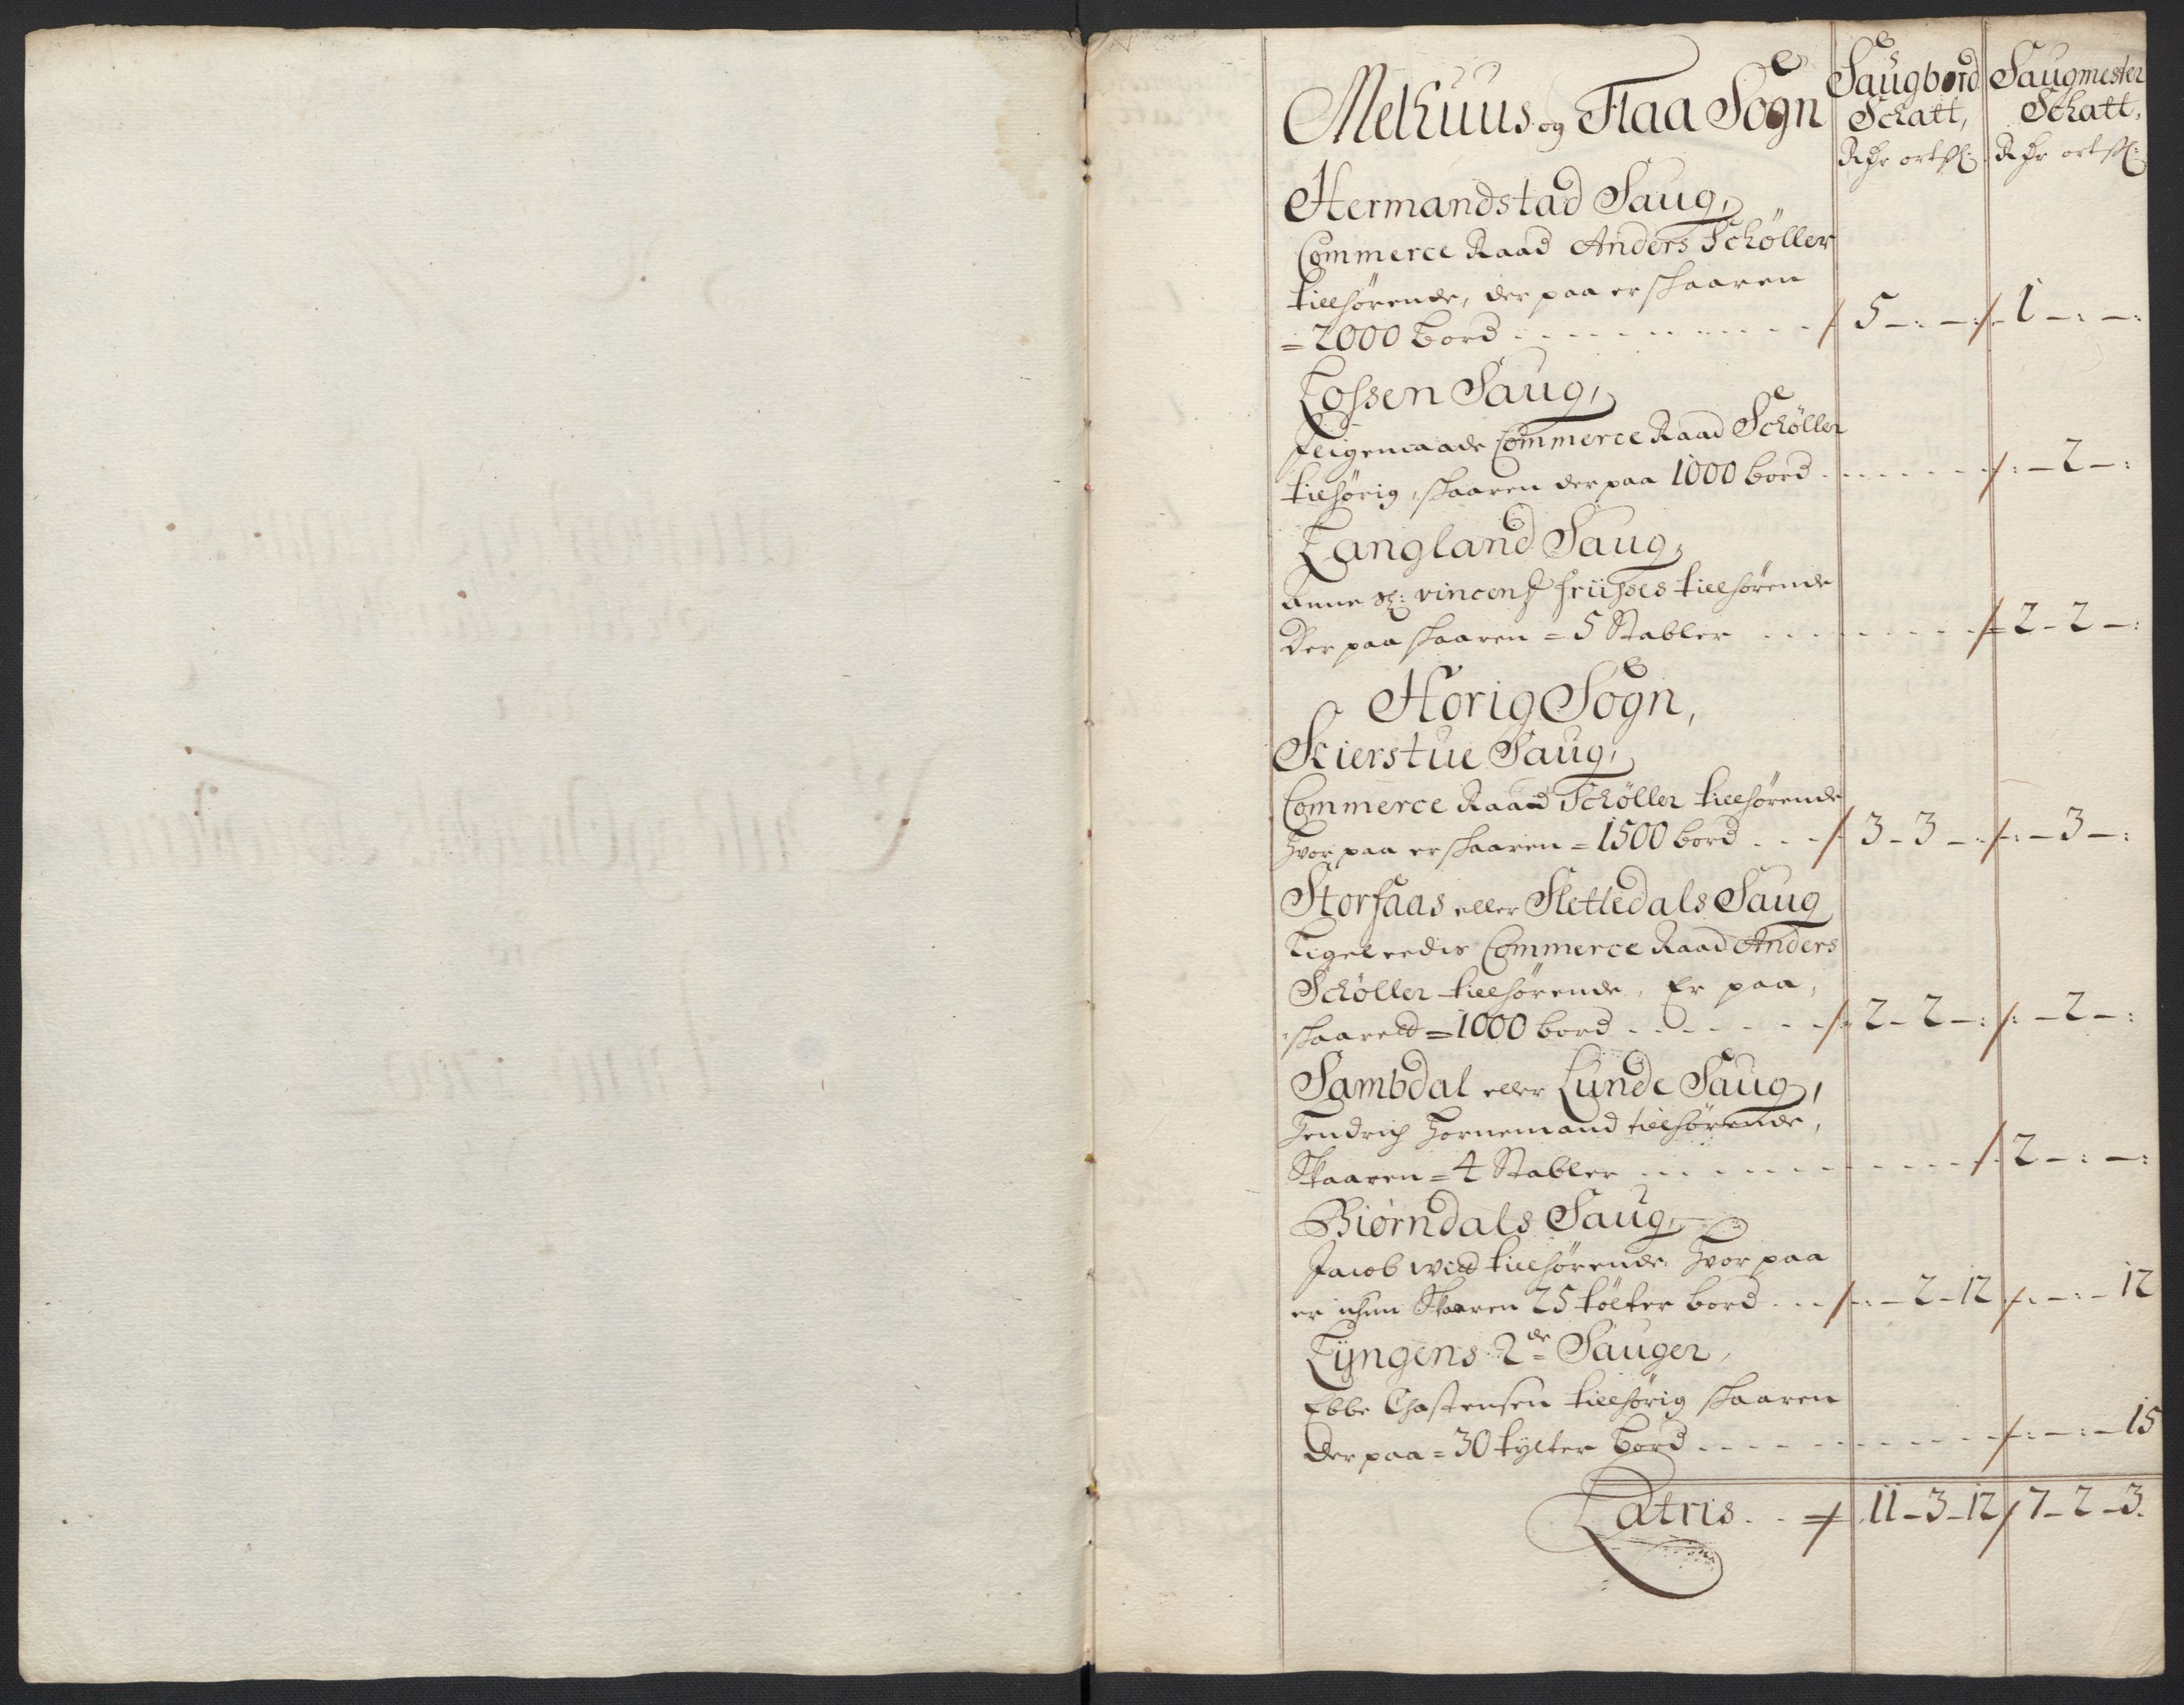 Melhuus og Flaa Sogn
Saugbord Schatt, Rdr ort ß:
Saugmester Schatt, Rdr ort ß:
Hermandstad Saug,
Commerce Raad Anders Schøller
tillhørende, der paa er skaaren
= 2000 bord 5 - : - : 1 - : - :
Fossen Saug,
Ligemaade Commerce Raad Schøller
tilhørig, skaaren der paa 1000 bord : - 2 - :
Langland Saug,
Anne Sl: vincents friisses tillhørende
Der paa skaaren = 5 Stabler 2 - 2 - :
Horig Sogn,
Kierstue Saug,
Commerce Raad Schøller tillhørende
Hvor paa er skaaren = 1500 bord 3 - 3 - : : - 3 - :
Storsaas eller Slettedals Saug
Ligeleedis Commerce Raad Anders
Schøller tillhørende, Er paa,
skaaret = 1000 bord 2 - 2 - : : - 2 - :
Sambdal eller Lunde Saug,
Hendrich Hornemand tilhørende,
Skaaren = 4 Stabler 2 - : - :
Biørndals Saug,
Jacob wid tilhørende hvor paa
er ichun Skaaren 25 tolter bord : - 2 - 12 : - : - 12
Lyngens 2de Sauger,
Ebbe Chastensen tillhørig skaaren
der paa = 30 tylter bord : - : - 15
Latris 11 - 3 - 12 7 - 2 - 3